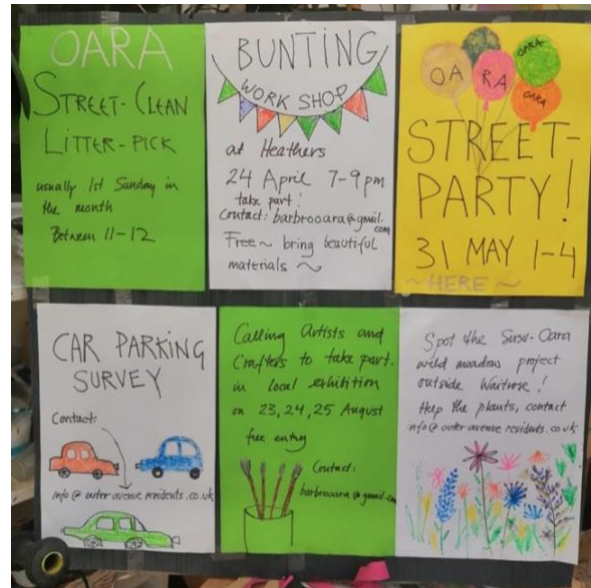 OARA
STREET-CLEAN
LITTER-PICK
usually 1st Sunday in
the month
Between 11-12
BUNTING
WORK SHOP
at Heathers
24 April 7-9 pm
take part:
Contact: barbrooara@gmail.
com
Free ~ bring beautiful
materials ~
OARA
OA RA
OARA
STREET-
PARTY!
31 MAY 1-4
~HERE~
CAR PARKING
SURVEY
Contact:
info@outeravenueresidents.co.uk
Calling Artists and
Crafters to take part.
in local exhibition
on 23, 24, 25 August
free entry
Contact:
barbrooara@gmail.com
Spot the Susu-Oara
wild meadow project
outside Waitrose!
Help the plants, contact
info@outeravenueresidents.co.uk